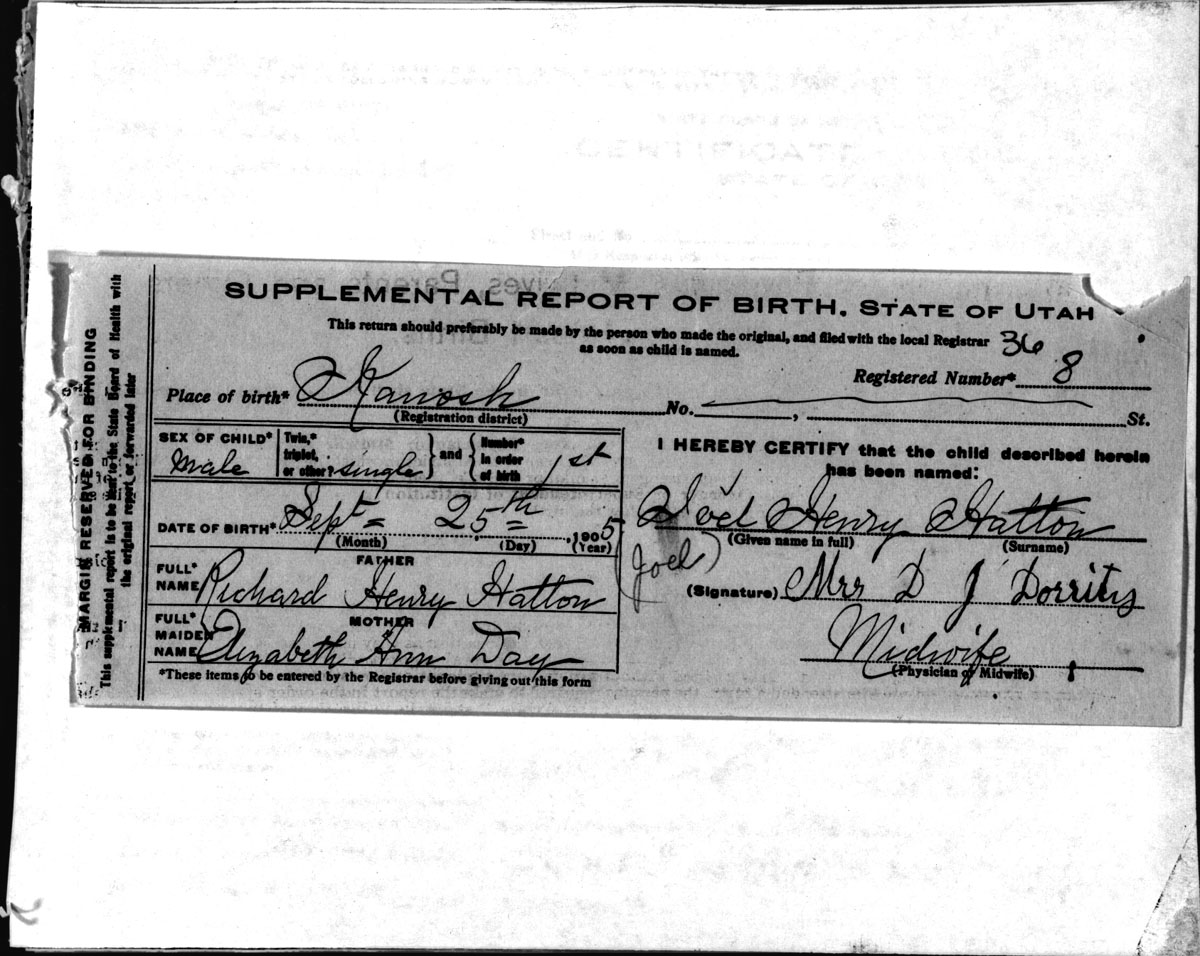 SUPPLEMENTAL REPORT OF BIRTH. STATE OF UTAH
This return should preferably be made by the person who made the original, and filed with the local Registrar
as soon as child is named.
36
Registered Number* 8
Place of birth* Kanosh No. , St.
(Registration district)
SEX OF CHILD* male
Twin,* triplet, or other? single
and
Number* in order of birth 1st
DATE OF BIRTH* Sept 25th, 1905
(Month) (Day) (Year)
FATHER
FULL* NAME Richard Henry Hatton
MOTHER
FULL* MAIDEN NAME Elizabeth Ann Day
*These items to be entered by the Registrar before giving out this form
I HEREBY CERTIFY that the child described herein
has been named:
Joel Henry Hatton
(Given name in full) (Surname)
(Joel)
(Signature) Mrs D J Dorrity
Midwife
(Physician of Midwife)
MARGIN RESERVED FOR BINDING
This supplemental report is to be sent to the State Board of Health with
the original report, or forwarded later